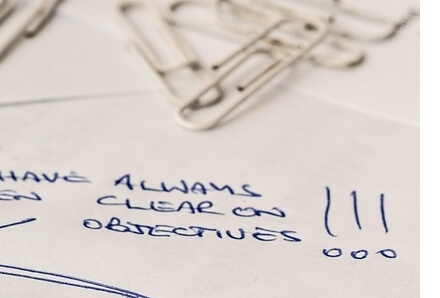 HAVE ALWAYS
EN CLEAR ON
OBJECTIVES !!!